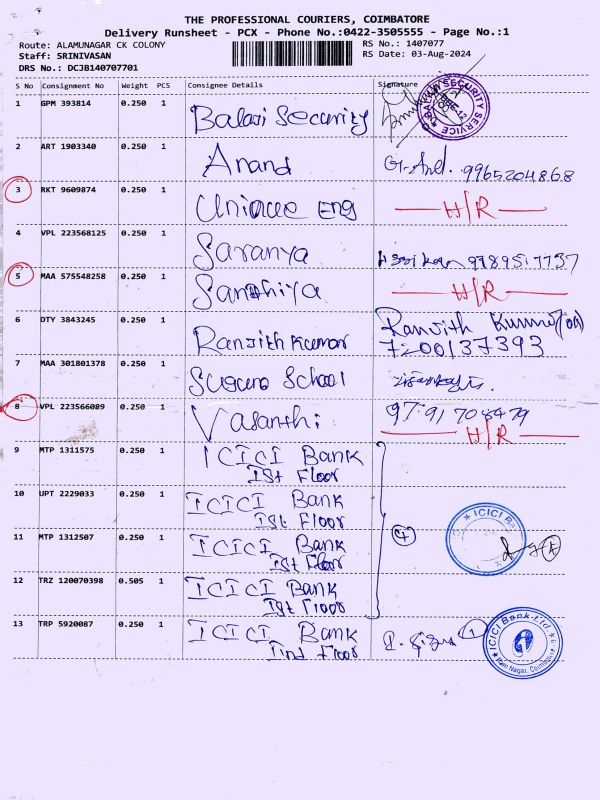 THE PROFESSIONAL COURIERS, COIMBATORE
Delivery Runsheet - PCX - Phone No.:0422-3505555 - Page No.:1
Route: ALAMUNAGAR CK COLONY
RS No.: 1407077
Staff: SRINIVASAN
RS Date: 03-Aug-2024
DRS No.: DCJB140707701
S No Consignment No Weight PCS Consignee Details Signature
1 GPM 393814 0.250 1 Balaji Security
SECURITY SERVICE
2 ART 1903340 0.250 1 Anand 9965204868
3 RKT 9609874 0.250 1 Unique Eng H/R
4 VPL 223568125 0.250 1 Saranya
5 MAA 575548258 0.250 1 Sandhiya H/R
6 DTY 3843245 0.250 1 Ranjith Kumar Ranjith Kumar
7200137393
7 MAA 301801378 0.250 1 Suguna School
8 VPL 223566089 0.250 1 Vasanthi 9791708479
H/R
9 MTP 1311575 0.250 1 ICICI Bank
Ist Floor
10 UPT 2229033 0.250 1 ICICI Bank
Ist Floor
ICICI Bank
11 MTP 1312507 0.250 1 ICICI Bank
Ist Floor
4
12 TRZ 120070398 0.505 1 ICICI Bank
Ist Floor
13 TRP 5920087 0.250 1 ICICI Bank
IInd Floor
1
ICICI Bank Ltd
Ram Nagar, Coimbatore